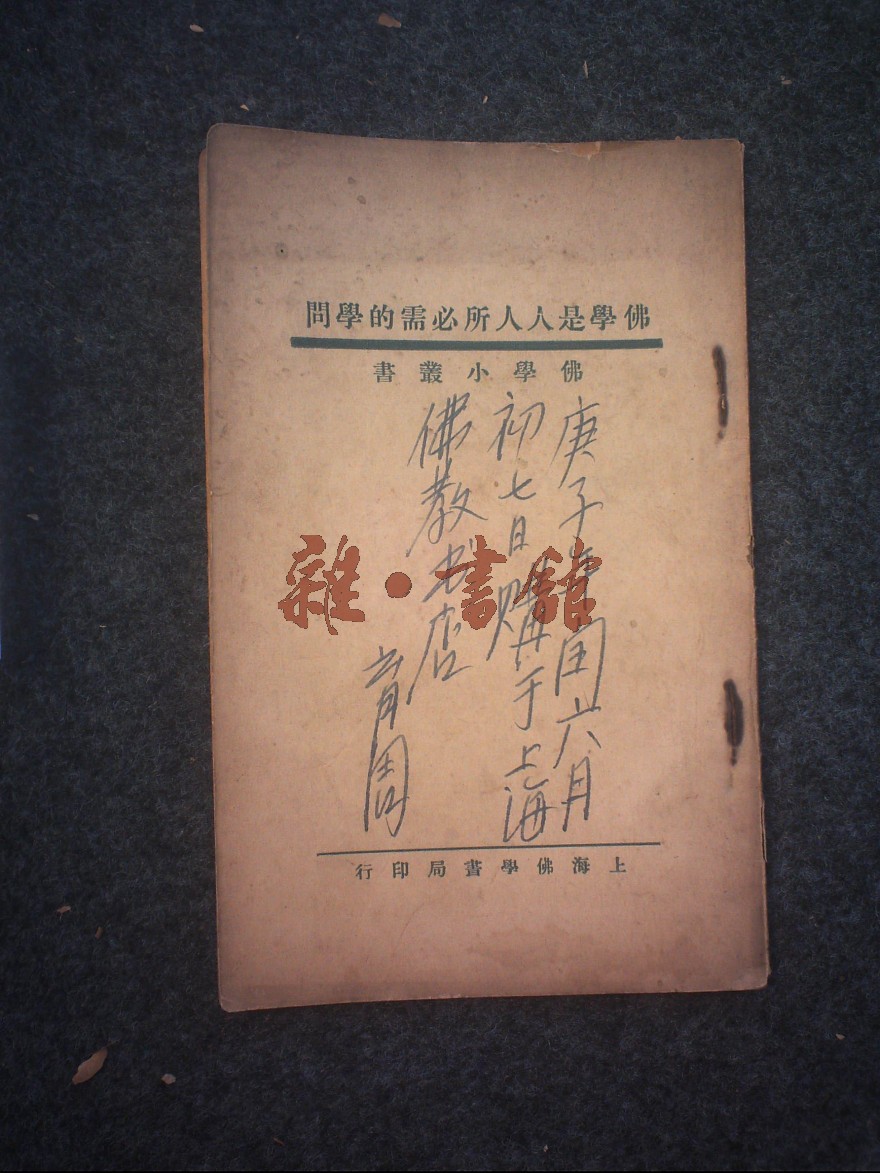 佛學是人人所必需的學問
佛學小叢書
庚子年闰六月
初七日購于上海
佛教书店
育周
雜·書館
上海佛學書局印行